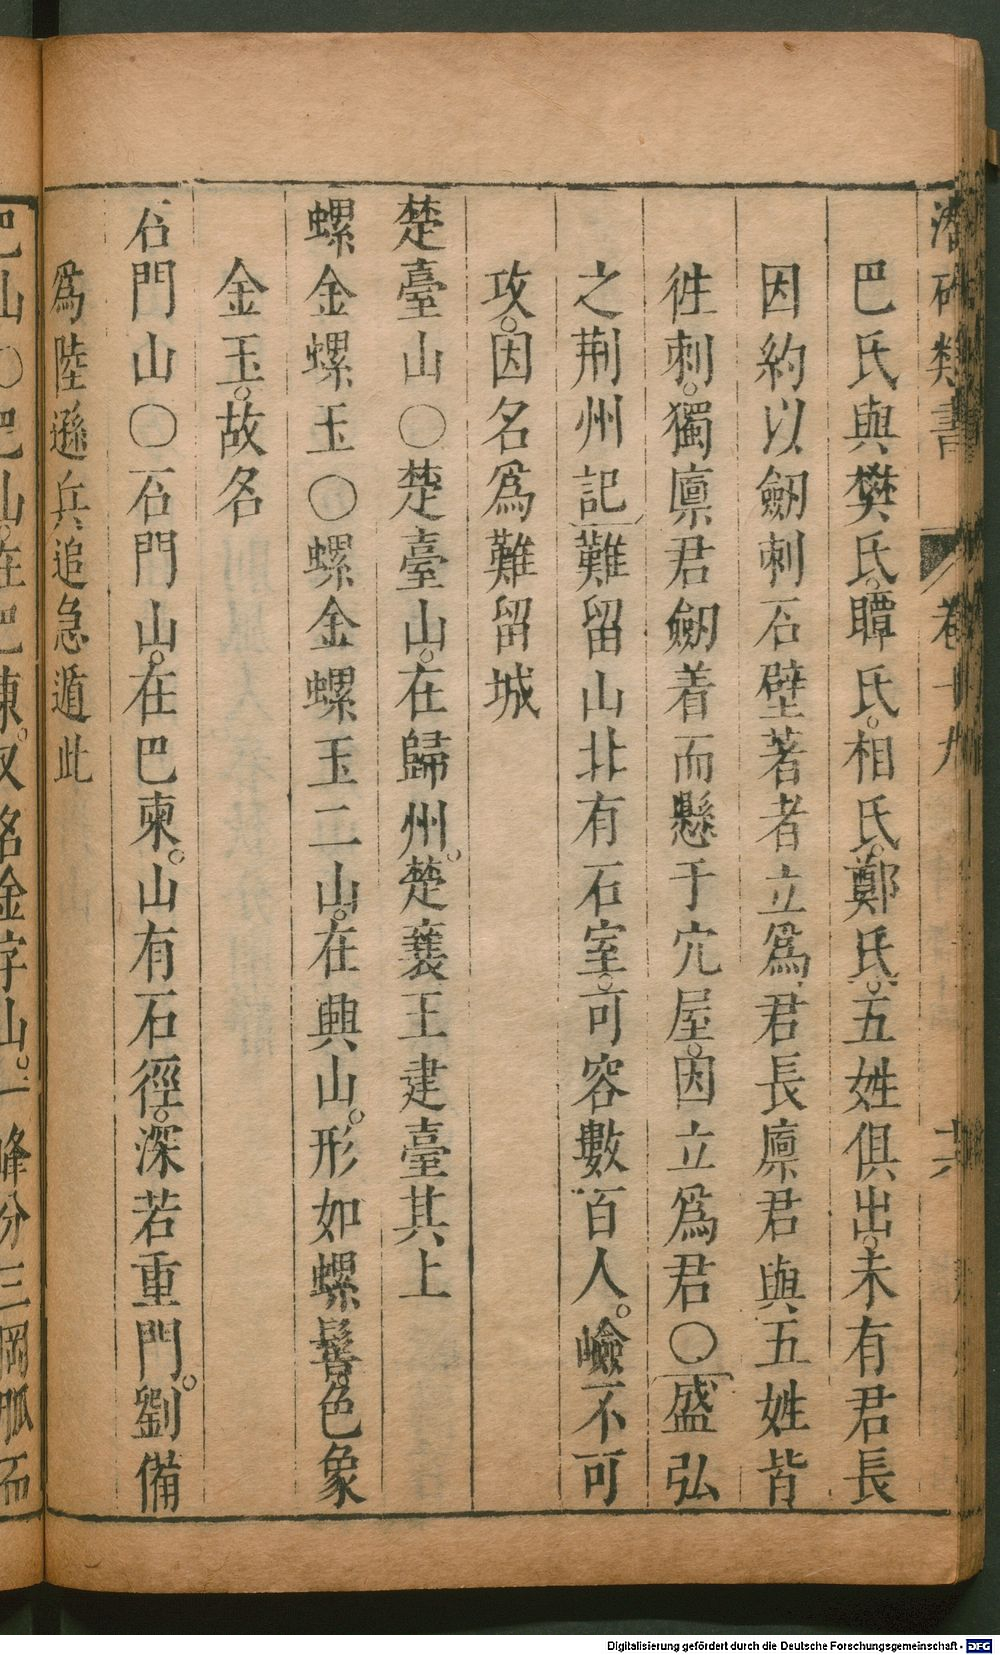 潛確類書 卷十九 六
巴氏與樊氏。瞫氏。相氏。鄭氏。五姓俱出。未有君長
因約以劒刺石壁著者立爲君長廪君與五姓皆
徃刺。獨廪君劒着而懸于穴屋。因立爲君〇盛弘
之荆州記難留山北有石室。可容數百人。嶮不可
攻。因名爲難留城
楚臺山〇楚臺山。在歸州。楚襄王建臺其上
螺金螺玉〇螺金螺玉二山。在興山。形如螺髻。色象
金玉。故名
石門山〇石門山。在巴東。山有石徑。深若重門。劉備
爲陸遜兵追急遁此
巴山〇巴山。在巴東。又名金字山。一峰分三岡脈石
Digitalisierung gefördert durch die Deutsche Forschungsgemeinschaft - DFG